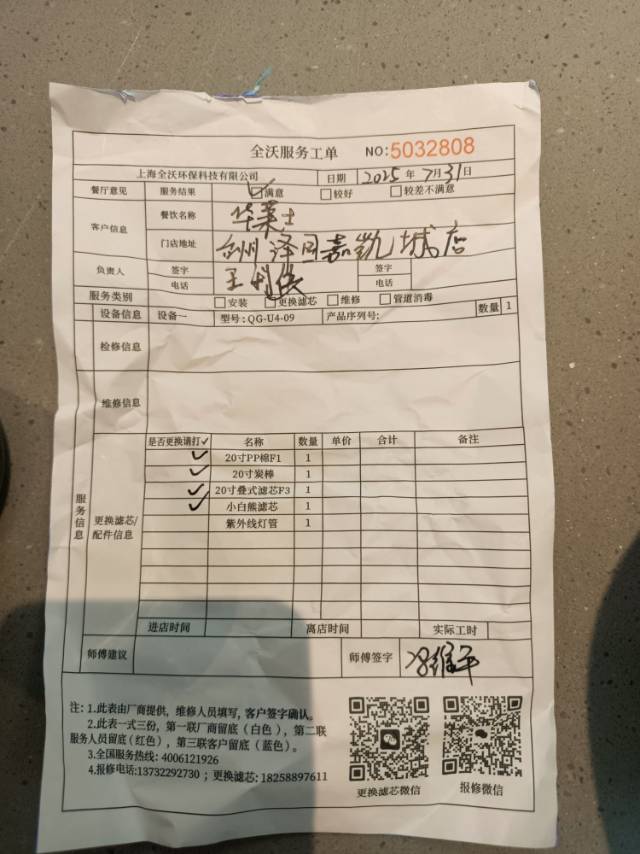 全沃服务工单 NO:5032808
上海全沃环保科技有限公司 日期 2025年7月31日
餐厅意见 服务结果 ☑满意 □较好 □较差不满意
客户信息 餐饮名称 华莱士
门店地址 台州泽国嘉凯城店
负责人 签字 王 签字
电话 电话
服务类别 □安装 □更换滤芯 □维修 □管道消毒
设备信息 设备一 型号:QG-U4-09 产品序列号: 数量 1
检修信息
维修信息
服务信息
更换滤芯/配件信息
是否更换请打✓ 名称 数量 单价 合计 备注
✓ 20寸PP棉F1 1
✓ 20寸炭棒 1
✓ 20寸叠式滤芯F3 1
✓ 小白熊滤芯 1
紫外线灯管 1
进店时间 离店时间 实际工时
师傅建议 师傅签字
注: 1.此表由厂商提供, 维修人员填写, 客户签字确认。
2.此表一式三份, 第一联厂商留底(白色), 第二联
服务人员留底(红色), 第三联客户留底(蓝色)。
3.全国服务热线: 4006121926
4.报修电话:13732292730; 更换滤芯: 18258897611
更换滤芯微信 报修微信